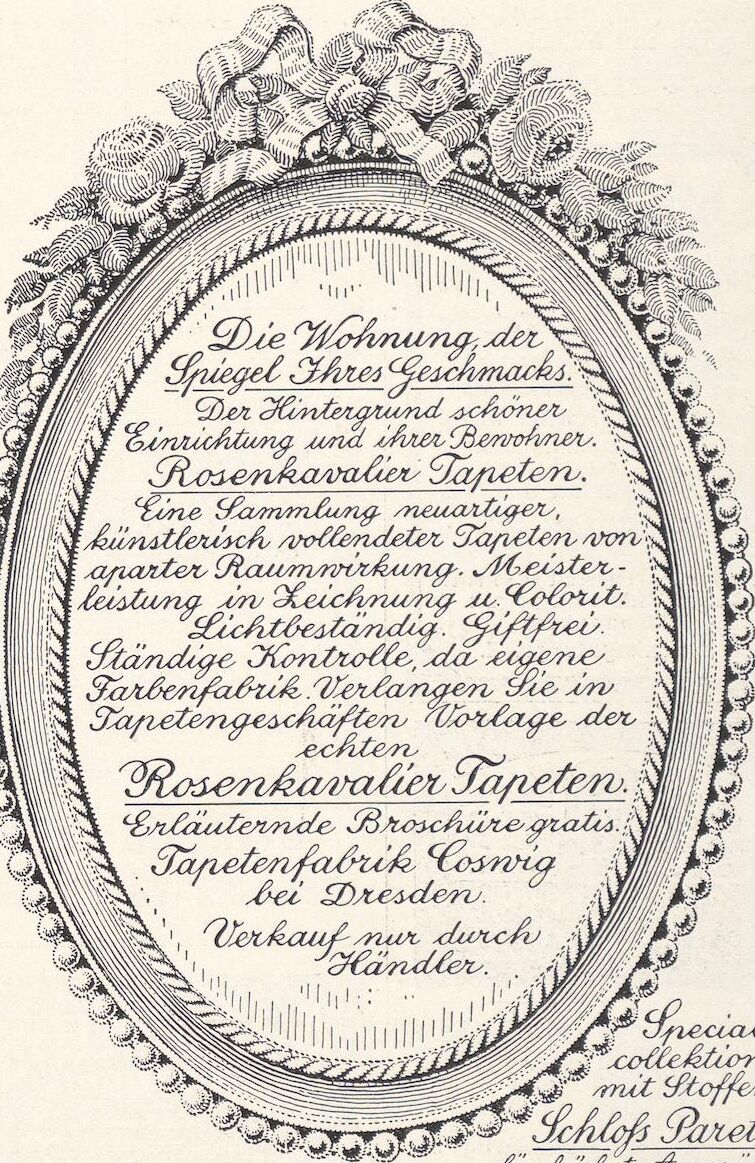 Die Wohnung, der
Spiegel Ihres Geschmacks.
Der Hintergrund schöner
Einrichtung und ihrer Bewohner.
Rosenkavalier Tapeten.
Eine Sammlung neuartiger,
künstlerisch vollendeter Tapeten von
aparter Raumwirkung. Meister-
leistung in Zeichnung u. Colorit.
Lichtbeständig. Giftfrei.
Ständige Kontrolle, da eigene
Farbenfabrik. Verlangen Sie in
Tapetengeschäften Vorlage der
echten
Rosenkavalier Tapeten.
Erläuternde Broschüre gratis.
Tapetenfabrik Coswig
bei Dresden.
Verkauf nur durch
Händler.
Special
collektion
mit Stoffe
Schloſs Paret